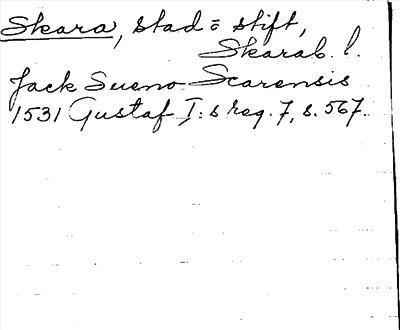 Skara, stad o stift,
Skarab. l.
Jack Sueno Scarensis
1531 Gustaf I:s reg. 7, s. 567.